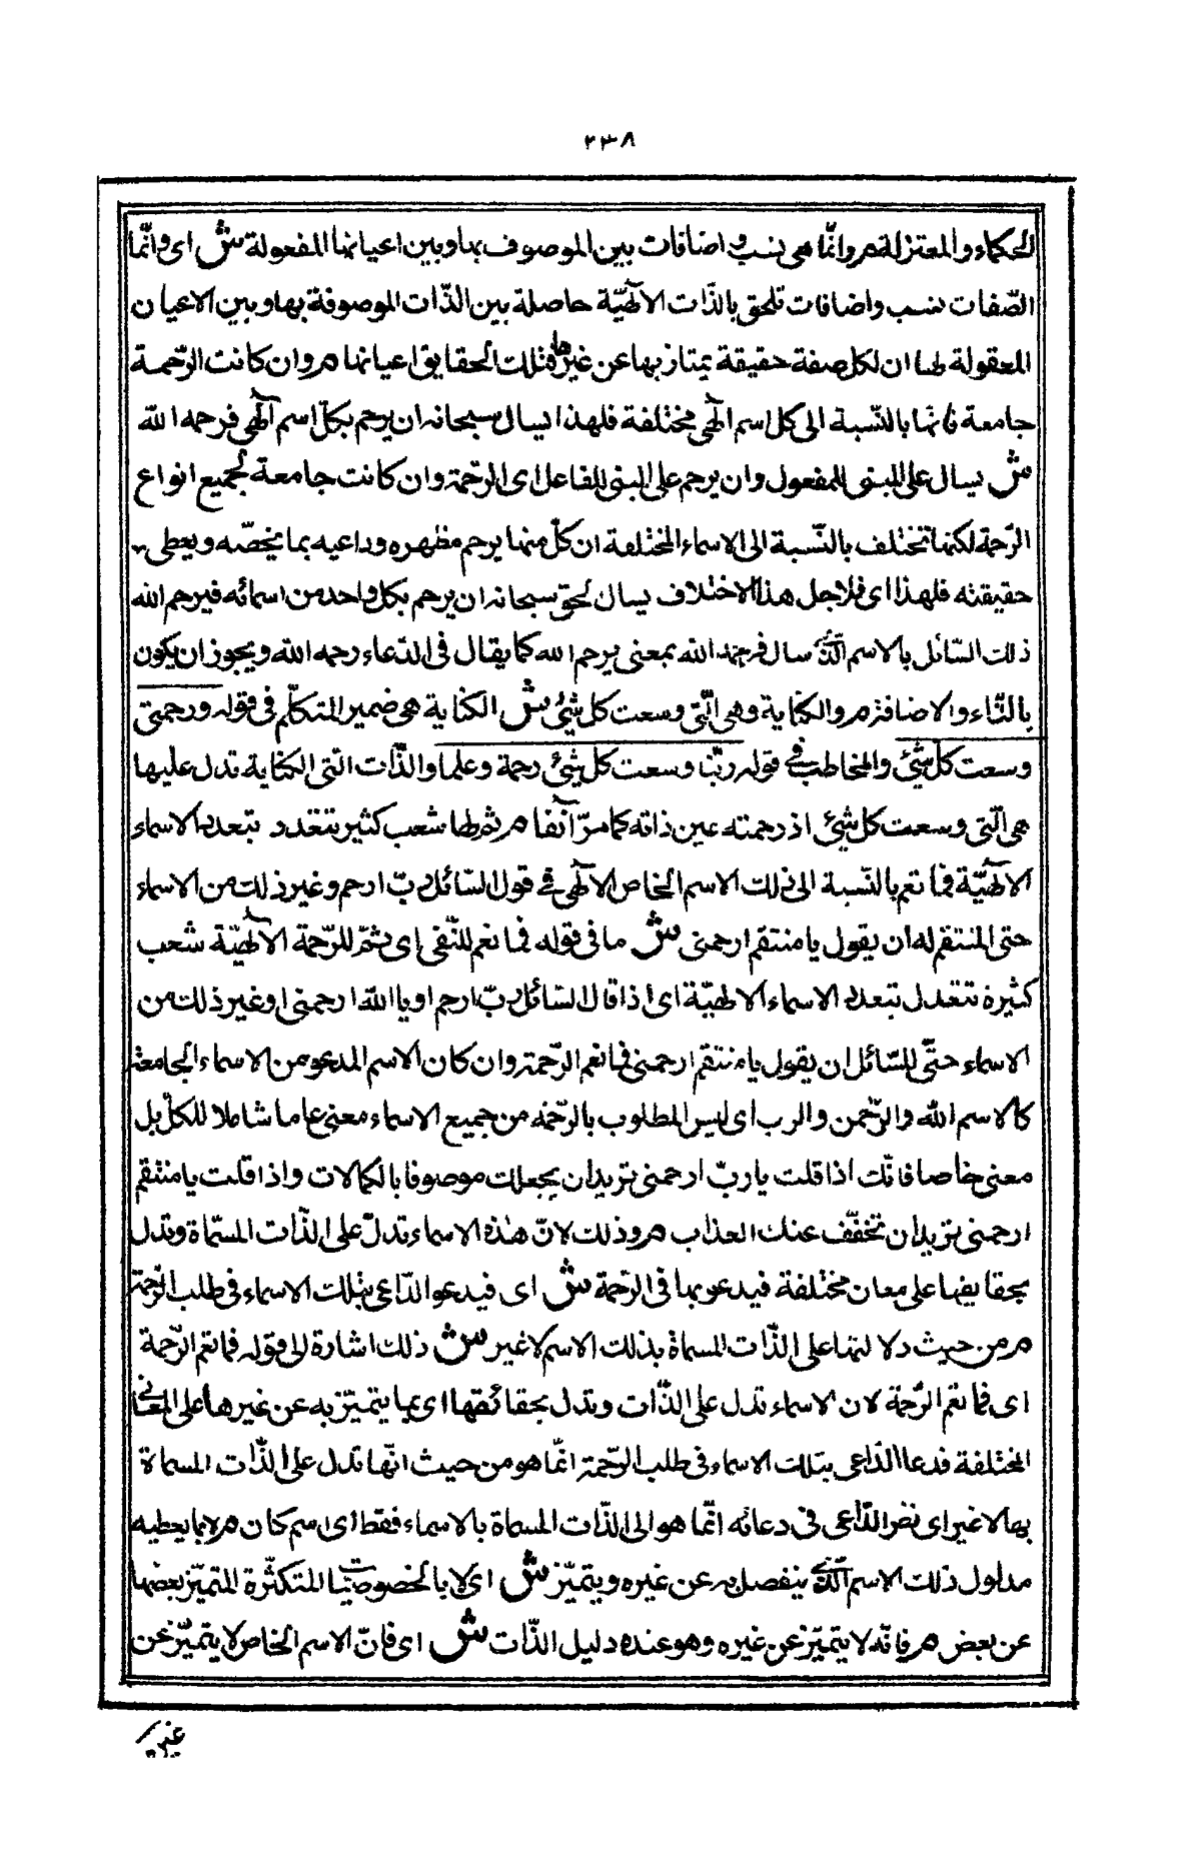 ٢٣٨
الحكماء والمعتزلة م وانّما هى نسب و اضافات بين الموصوف بها وبين اعيانها المفعولة ش اى وانّما
الصّفات نسب واضافات تلحق بالذّات الالٓهيّة حاصلة بين الذّات الموصوفة بها وبين الاعيان
المعقولة لها ان لكل صفة حقيقة يمتاز بها عن غيرها فتلك الحقايق اعيانها م وان كانت الرّحمة
جامعة فانها بالنّسبة الى كل اسم الٓهى مختلفة فلهذا يسال سبحانه ان يرحم بكلّ اسم الٓهى فرحمه الله
ش يسال على المبنى للمفعول وان يرحم على المبنى للفاعل اى الرّحمة وان كانت جامعة لجميع انواع
الرّحمة لكنها تختلف بالنّسبة الى الاسماء المختلفة ان كلّ منها يرحم مظهره وداعيه بما يخصّه ويعطى
حقيقته فلهذا اى فلاجل هذا الاختلاف يسال لحق سبحانه ان يرحم بكل واحد من اسمائه فيرحم الله
ذلك السّائل بالاسم الّذى سال فرحمه الله بمعنى يرحم الله كما يقال فى الدّعاء رحمه الله ويجوز ان يكون
بالتّاء والاضافة م والكناية وهى الّتى وسعت كل شئ ش الكناية هى ضمير المتكلّم فى قوله ورحمتى
وسعت كلّ شئ والمخاطب فى قوله ربّنا وسعت كل شئ رحمة وعلما والذّات التى الكناية تدل عليها
هى الّتى وسعت كل شئ اذ رحمته عين ذاته كما مرّ آنفا م ثم لها شعب كثير تتعدد بتعدد الاسماء
الالٓهيّة فما تعم بالنّسبة الى ذلك الاسم الخاص الالٓهى فى قول السّائل ربّ ارحم وغير ذلك من الاسماء
حتى المنتقم له ان يقول يا منتقم ارحمنى ش ما فى قوله فما تعم للنّفى اى ثمّ للرّحمة الالٓهيّة شعب
كثيرة تتعدد بتعدد الاسماء الالهيّة اى اذا قال السّائل ربّ ارحم او يا الله ارحمنى او غير ذلك من
الاسماء حتّى للسّائل ان يقول يا منتقم ارحمنى فما تعم الرّحمة وان كان الاسم المدعو من الاسماء الجامعة
كالاسم الله والرّحمن والرب اى ليس المطلوب بالرّحمة من جميع الاسماء معنى عاما شاملا للكلّ بل
معنى خاصا فانّك اذا قلت يا ربّ ارحمنى تريد ان يجعلك موصوفا بالكمالات واذا قلت يا منتقم
ارحمنى تريد ان تخفّف عنك العذاب م وذلك لانّ هذه الاسماء تدلّ على الذّات المسمّاة وتدل
بحقايقها على معان مختلفة فيدعو بها فى الرّحمة ش اى فيدعو الدّاعى بتلك الاسماء فى طلب الرّحمة
م من حيث دلالتها على الذّات المسماة بذلك الاسم لا غير ش ذلك اشارة الى قوله فما تعم الرّحمة
اى فما تعم الرّحمة لان الاسماء تدل على الذّات وتدل بحقائقها اى بما يتميّز به عن غيرها على المعانى
المختلفة فدعا الدّاعى بتلك الاسماء فى طلب الرّحمة انّما هو من حيث انّها تدل على الذّات المسماة
بها لا غير اى نظر الدّاعى فى دعائه انّما هو الى الذّات المسماة بالاسماء فقط اى اسم كان م لا بما يعطيه
مدلول ذلك الاسم الّذى ينفصل به عن غيره ويتميّز ش اى لا بالخصوصيّات المتكثّرة المتميّز بعضها
عن بعض م فانّه لا يتميّز عن غيره وهو عنده دليل الذّات ش اى فانّ الاسم الخاص لا يتميّز عن
غيره